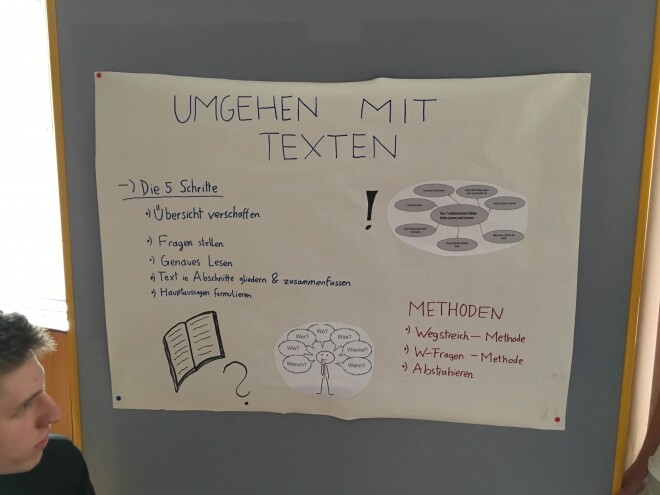 UMGEHEN MIT
TEXTEN
–) Die 5 Schritte
•) Übersicht verschaffen
•) Fragen stellen
•) Genaues Lesen
•) Text in Abschnitte gliedern & zusammenfassen
•) Hauptaussagen formulieren
!
METHODEN
•) Wegstreich – Methode
•) W-Fragen – Methode
•) Abstrahieren
?
Wo?
Wer?
Was?
Wie?
Warum?
Wann?